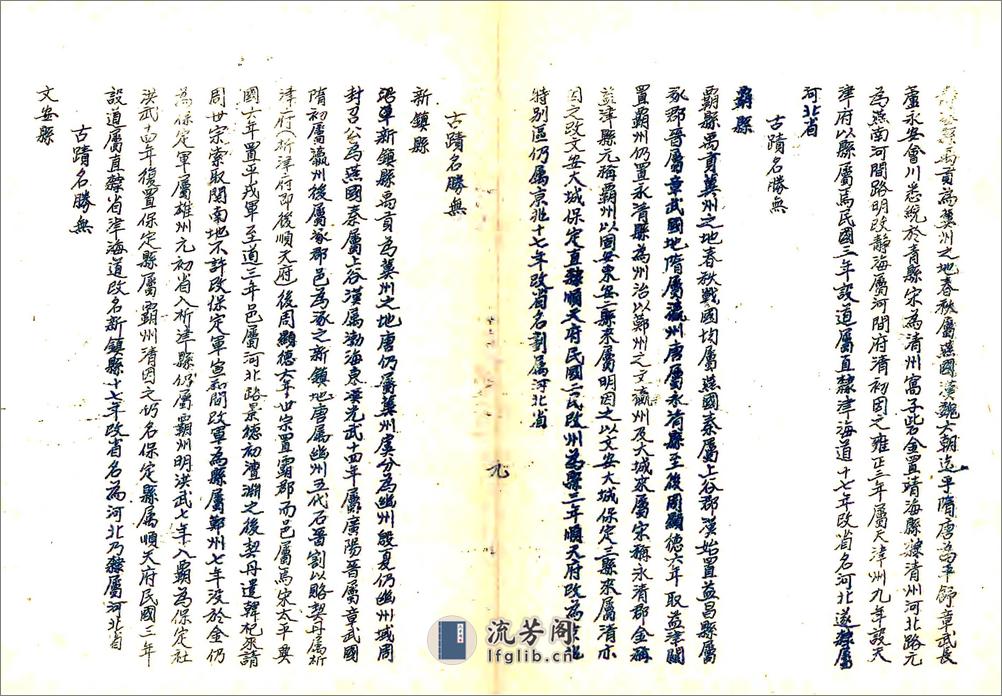 縣禹貢為冀州之地春秋屬燕國漢魏六朝迄乎隋唐為平舒章武長
蘆永安會川悉統於青縣宋為清州窩子岕金置靖海縣隸清州河北路元
為燕南河間路明改靜海屬河間府清初因之雍正三年屬天津州九年設天
津府以縣屬焉民國三年設道屬直隸津海道十七年改省名河北遂隸屬
河北省
古蹟名勝無
霸縣
霸縣禹貢冀州之地春秋戰國均屬燕國秦屬上谷郡漢始置益昌縣屬
涿郡晉屬章武國地隋屬瀛州唐屬永清縣至後周顯德六年取益津關
置霸州仍置永清縣為州治以鄚州之文瀛州及大城求屬宋稱永清郡金稱
益津縣元稱霸州以固安東安二縣來屬明因之以文安大城保定三縣來屬清亦
因之改文安大城保定直隸順天府民國二民改州為縣三年順天府改為京兆
特別區仍屬京兆十七年改省名劃屬河北省
古蹟名勝無
新鎮縣
沿革新鎮縣禹貢為冀州之地唐仍屬冀州虞分為幽州殷夏仍幽州域周
封召公為燕國秦屬上谷漢屬渤海東漢光武十四年屬廣陽晉屬章武國
隋初屬瀛州後屬涿郡邑為涿之新鎮地唐屬幽州五代石晉割以賂契丹屬析
津府（析津府即後順天府）後周顯德六年世宗置霸郡而邑屬焉宋太平興
國六年置平戎軍至道三年邑屬河北路景德初澶淵之後契丹遣韓杞來請
周世宗索取関南地不許改保定軍宣和間改軍為縣屬鄚州七年沒於金仍
為保定軍屬雄州元初省入析津縣仍屬霸州明洪武七年入霸為保定社
洪武十四年復置保定縣屬霸州清因之仍名保定縣属順天府民國三年
設道屬直隸省津海道改名新鎮縣十七年改省名為河北乃隸屬河北省
古蹟名勝無
文安縣
九
流芳阁
lfglib.cn